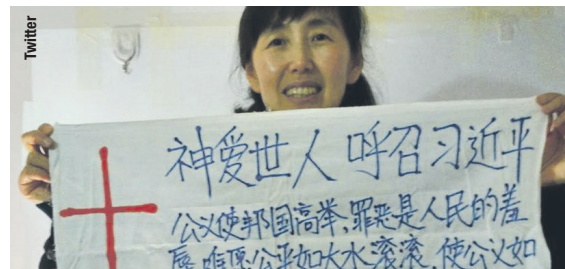 Twitter
神爱世人 呼召习近平
公义使邦国高举,罪恶是人民的羞
辱,唯愿公平如大水滚滚,使公义如